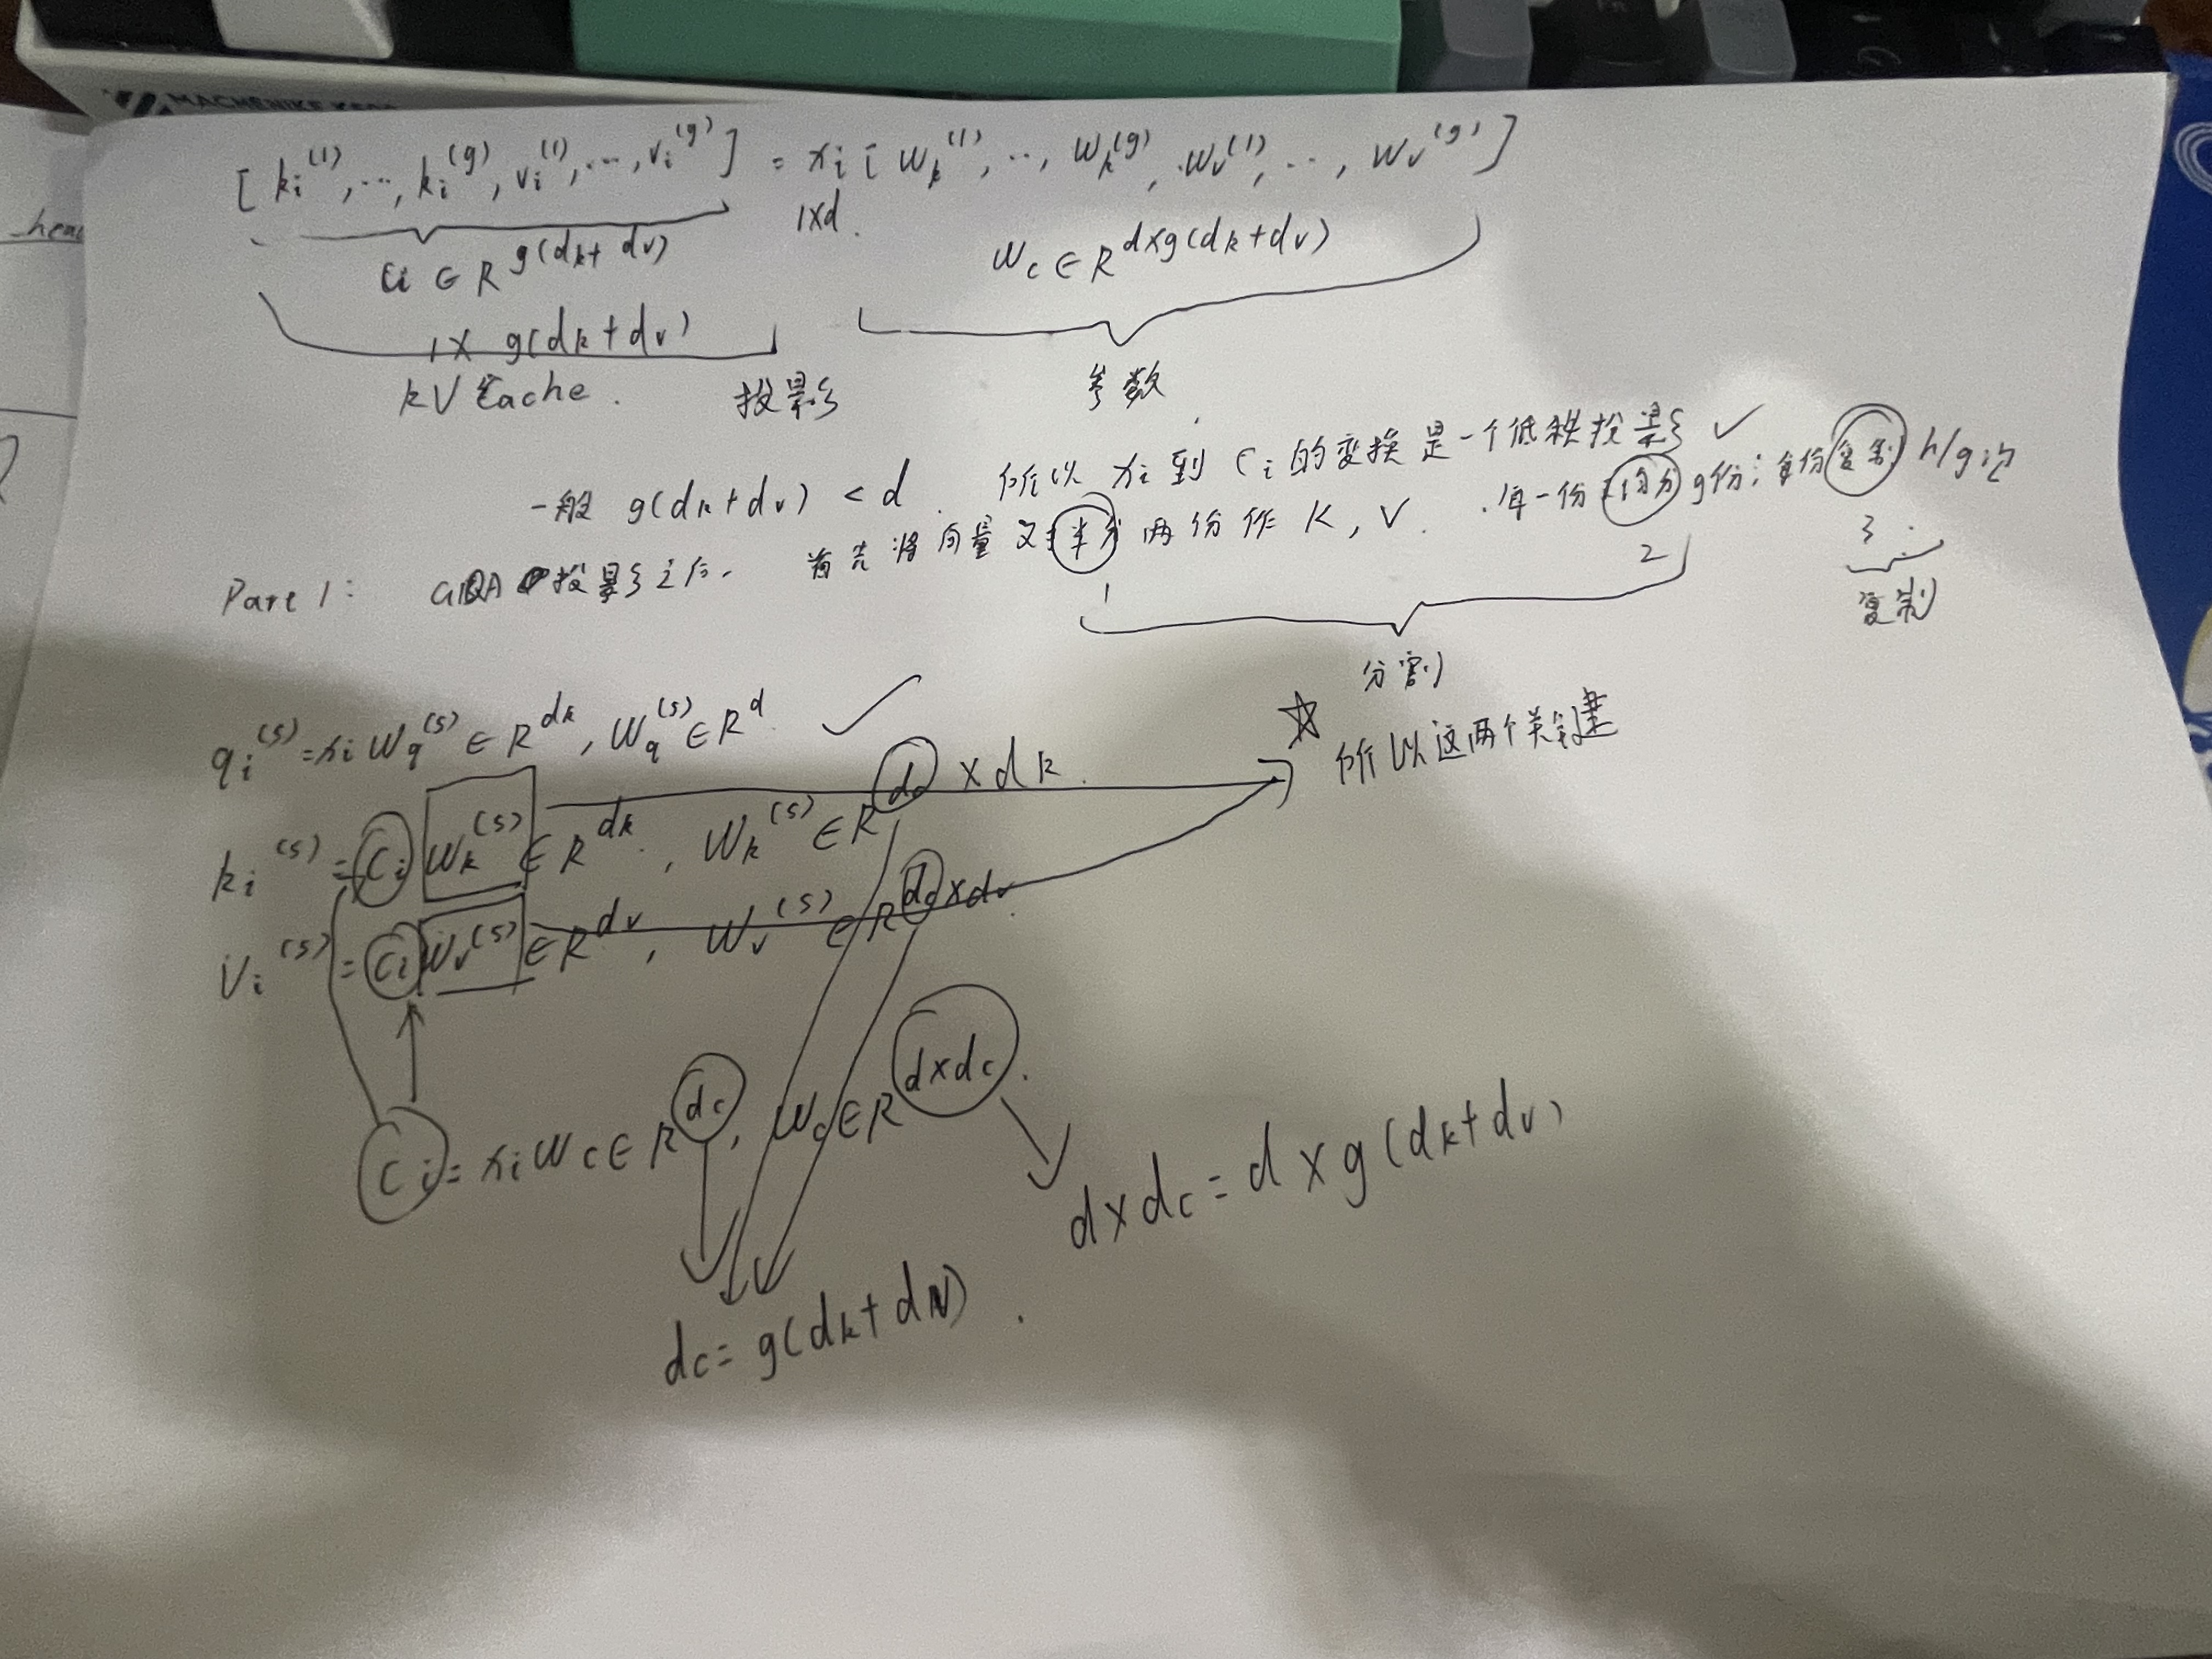 MACHENIKE
hea
[ki^(1), ..., ki^(g), vi^(1), ..., vi^(g)] = xi [Wk^(1), .., Wk^(g), Wv^(1), .., Wv^(g)]
1xd.
Ci ∈ R^g(dk+dv)
Wc ∈ R^dxg(dk+dv)
1x g(dk+dv)
kV Cache. 投影 参数
一般 g(dk+dv) < d. 所以 xi 到 ci 的变换是一个低秩投影 ✓
Part 1: GQA 投影之后. 首先将向量对半分两份作 K, V. 每一份均分 g份; 每份复制 h/g次
1 2 3
分割 复制
qi^(s) = xi Wq^(s) ∈ R^dk, Wq^(s) ∈ R^d ✓
☆ 所以这两个关键
ki^(s) = Ci Wk^(s) ∈ R^dk, Wk^(s) ∈ R^dc x dk.
Vi^(s) = Ci Wv^(s) ∈ R^dv, Wv^(s) ∈ R^dc x dv
Ci = xi Wc ∈ R^dc, Wc ∈ R^dxdc.
dxdc = d x g(dk+dv)
dc = g(dk+dv).